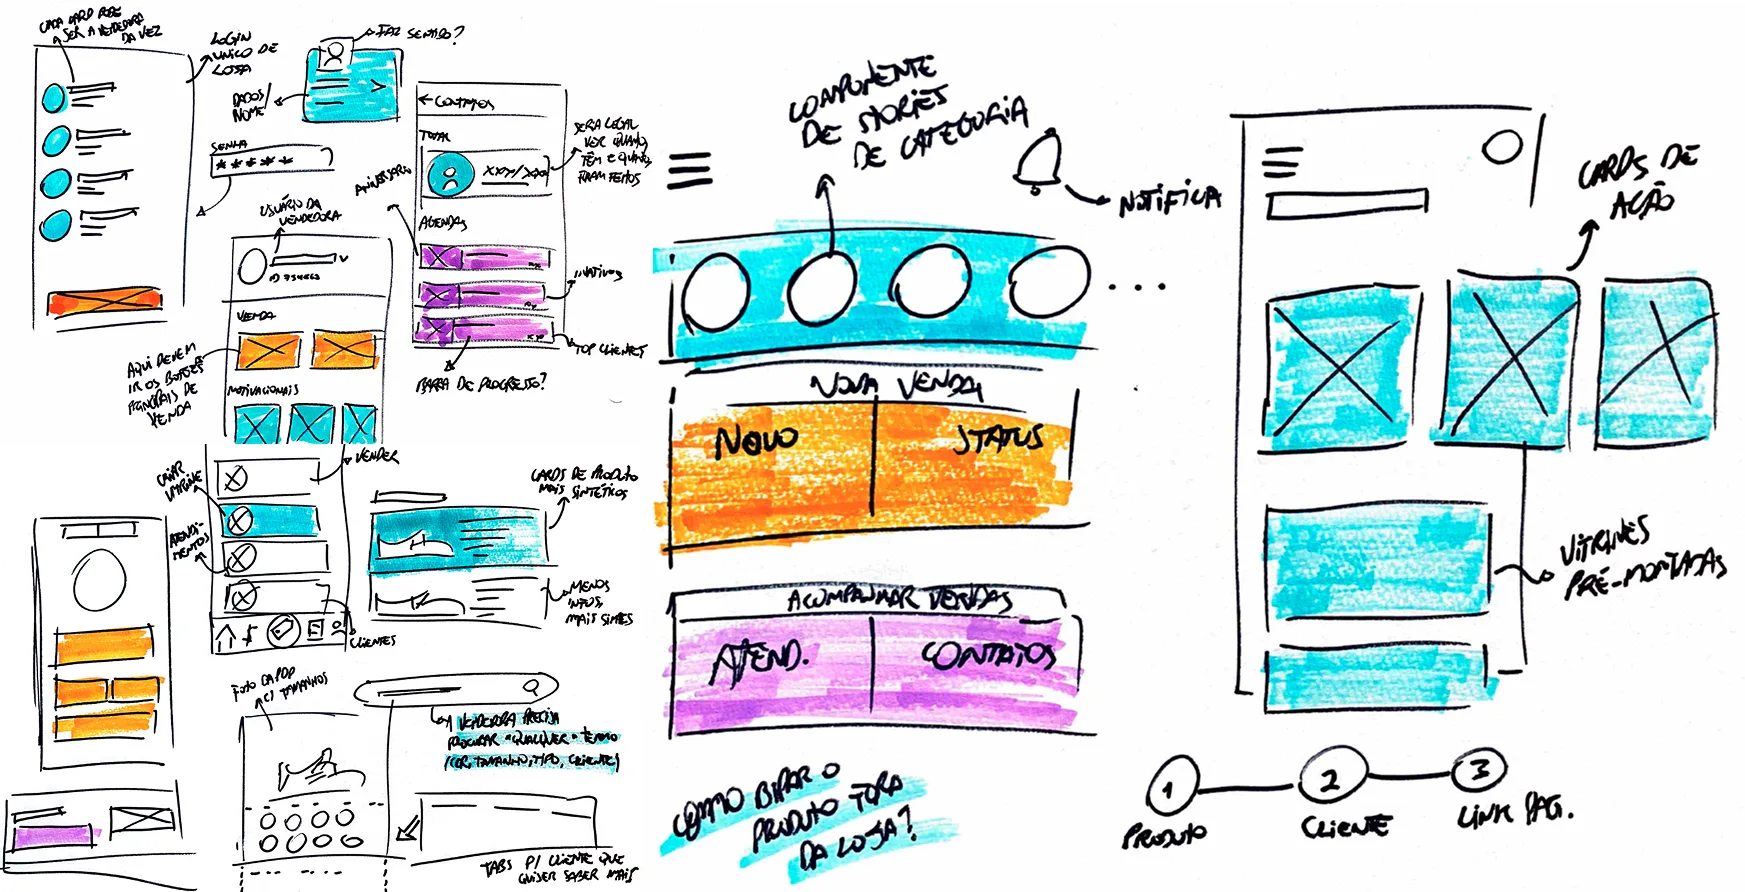 CADA CARD PODE
SER A VENDEDORA
DA VEZ
LOGIN
UNICO DE
LOJA
FAZ SENTIDO?
DADOS/
NOME
SENHA
*****
USUÁRIO DA
VENDEDORA
VENDA
AQUI DEVEM
IR OS BOTÕES
PRINCIPAIS DE
VENDA
MOTIVACIONAIS
← CONTATOS
TOTAL
XXX/XXX
SERIA LEGAL
VER QUANTOS
TÊM E QUANTOS
FORAM FEITOS
ANIVERSÁRIO
AGENDAS
INATIVOS
TOP CLIENTES
BARRA DE PROGRESSO?
VENDER
CRIAR
VITRINE
ATENDI-
MENTOS
CLIENTES
CARDS DE PRODUTO
MAIS SINTÉTICOS
MENOS
INFOS,
MAIS SIMPLES
FOTO DA PDP
C/ TAMANHOS
A VENDEDORA PRECISA
PROCURAR "QUALQUER" TERMO
(COR, TAMANHO, TIPO, CLIENTE)
TABS P/ CLIENTE QUE
QUISER SABER MAIS
COMPONENTE
DE STORIES
DE CATEGORIA
NOTIFICA
...
NOVA VENDA
NOVO
STATUS
ACOMPANHAR VENDAS
ATEND.
CONTATOS
COMO BIPAR O
PRODUTO FORA
DA LOJA?
CARDS DE
AÇÃO
VITRINES
PRÉ-MONTADAS
1
2
3
PRODUTO
CLIENTE
LINK PAG.